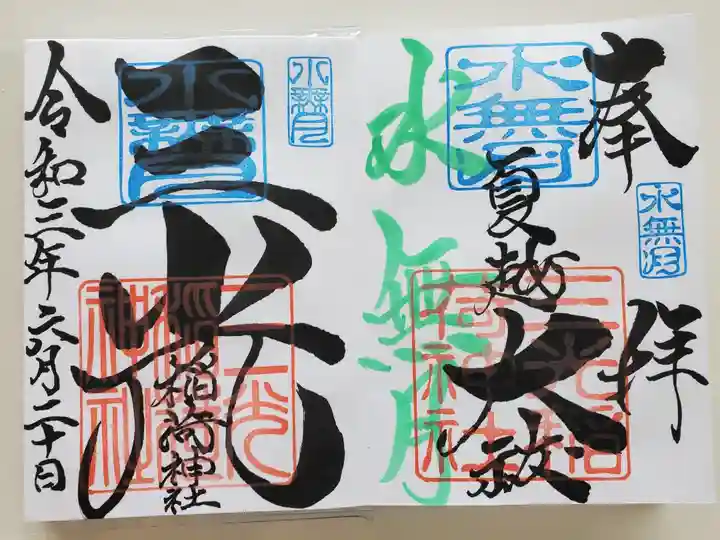 奉拝
水無月
水無月
夏越
大祓
三光稲荷神社
水無月
三光
稲荷神社
三光稲荷神社
水無月
水無月
令和三年六月二十日